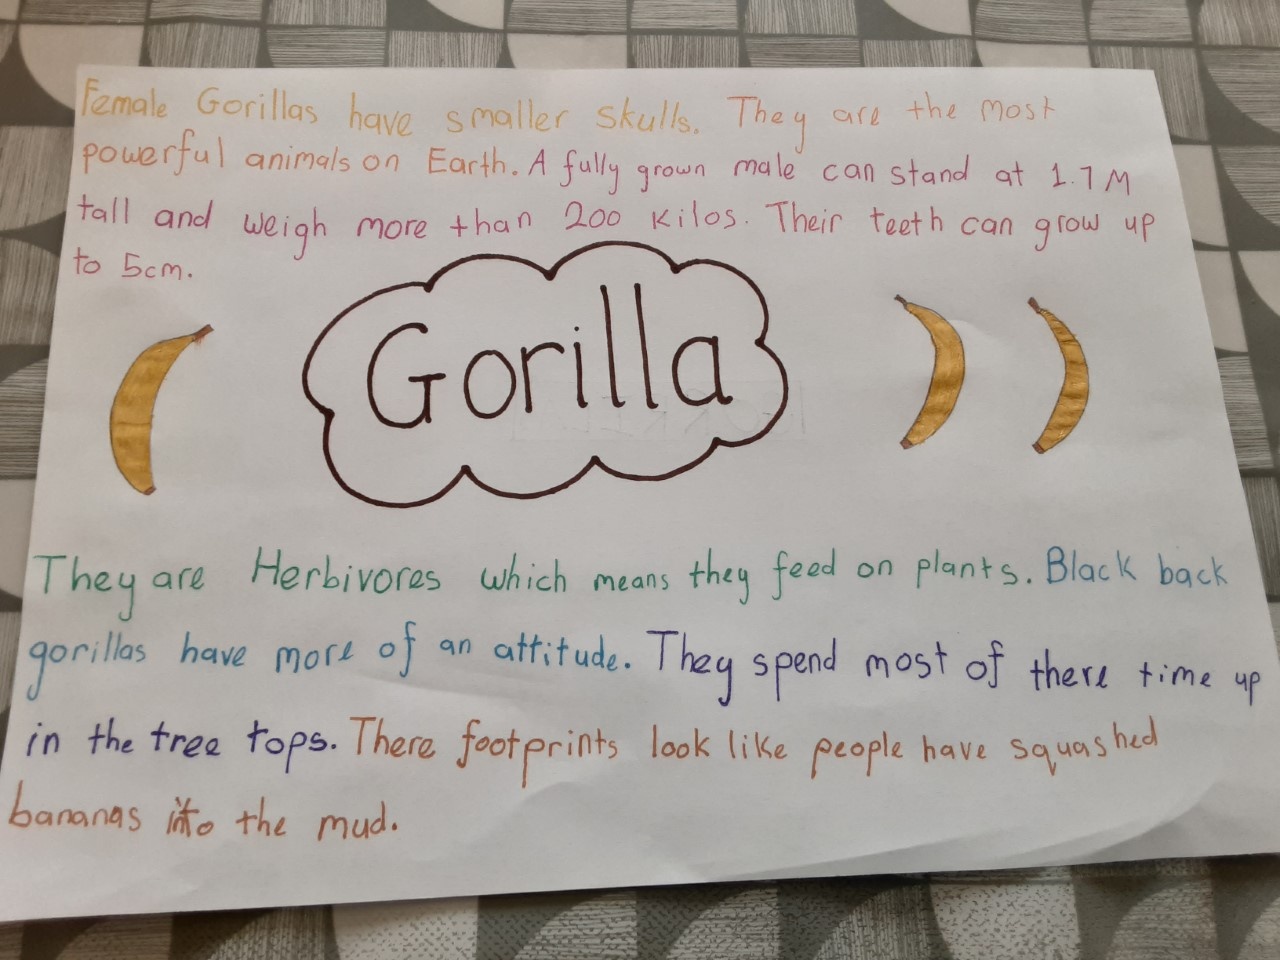 Female Gorillas have smaller skulls. They are the most
powerful animals on Earth. A fully grown male can stand at 1.7M
tall and weigh more than 200 kilos. Their teeth can grow up
to 5cm.
Gorilla
They are Herbivores which means they feed on plants. Black back
gorillas have more of an attitude. They spend most of there time up
in the tree tops. There footprints look like people have squashed
bananas into the mud.